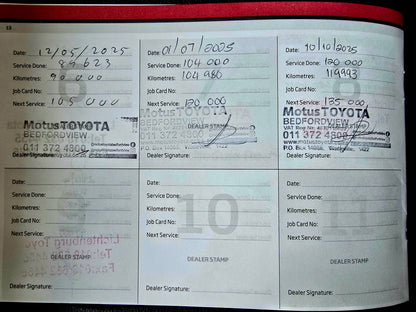 13
Date: 12/05/2025
Service Done: 89623
Kilometres: 90 000
Job Card No:
Next Service: 105 000
Motus TOYOTA
BEDFORDVIEW
011 372 4800
Dealer Signature:
Date: 01/07/2025
Service Done: 104 000
Kilometres: 104 980
Job Card No:
Next Service: 120 000
Motus TOYOTA
BEDFORDVIEW
011 372 4800
DEALER STAMP
Dealer Signature:
Date: 10/10/2025
Service Done: 120 000
Kilometres: 119993
Job Card No:
Next Service: 135 000
Motus TOYOTA
BEDFORDVIEW
VAT Reg No:
011 372 4800
P.O. Box
Dealer Signature:
Date:
Service Done:
Kilometres:
Job Card No:
Next Service:
Lichtenburg Toyo
DEALER STAMP
Dealer Signature:
Date:
Service Done:
Kilometres:
Job Card No:
Next Service:
10
DEALER STAMP
Dealer Signature:
Date:
Service Done:
Kilometres:
Job Card No:
Next Service:
DEALER STAMP
Dealer Signature: